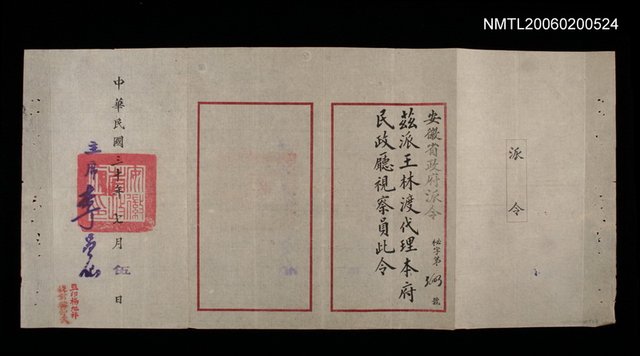 NMTL20060200524
派令
安徽省政府派令
秘字第 號
茲派王林渡代理本府
民政廳視察員此令
中華民國三十年七月伍日
主席李品仙